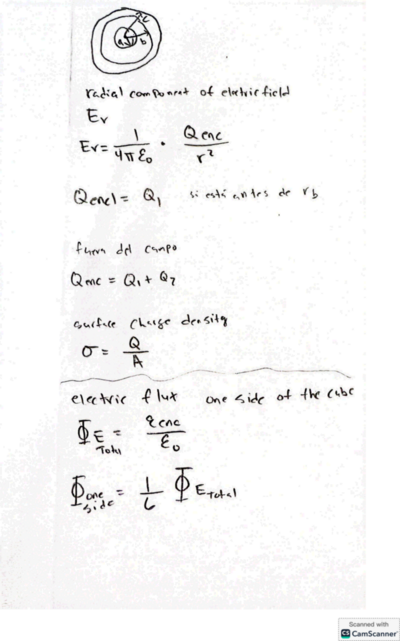 a
b
c
radial component of electric field
Er
Er = 1/4πε₀ · Qenc/r²
Qencl = Q₁ si está antes de rb
fuera del campo
Qenc = Q₁ + Q₂
surface charge density
σ = Q/A
electric flux one side of the cube
Φ E Total = qenc/ε₀
Φ one side = 1/6 Φ E Total
Scanned with
CS CamScanner